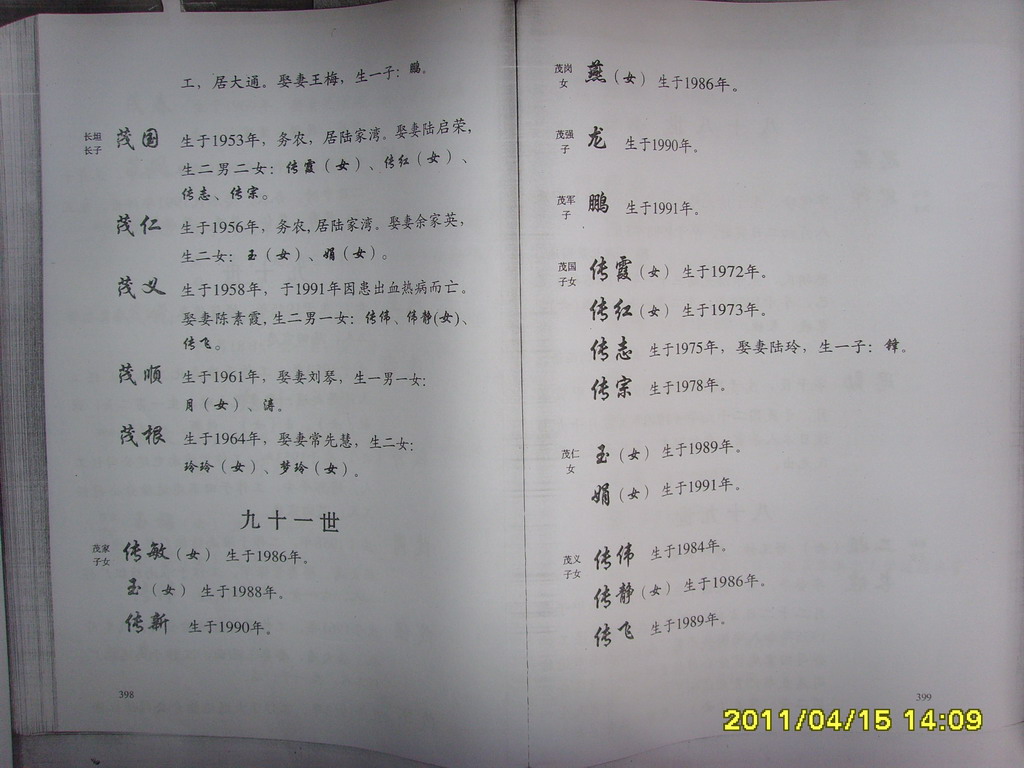 工，居大通。娶妻王梅，生一子：鹏。
长垣
长子
茂国 生于1953年，务农，居陆家湾。娶妻陆启荣，
生二男二女：传霞（女）、传红（女）、
传志、传宗。
茂仁 生于1956年，务农，居陆家湾。娶妻余家英，
生二女：玉（女）、娟（女）。
茂义 生于1958年，于1991年因患出血热病而亡。
娶妻陈素霞，生二男一女：传伟、伟静(女)、
传飞。
茂顺 生于1961年，娶妻刘琴，生一男一女：
月（女）、涛。
茂根 生于1964年，娶妻常先慧，生二女：
玲玲（女）、梦玲（女）。
九十一世
茂家
子女
传敏（女） 生于1986年。
玉（女） 生于1988年。
传新 生于1990年。
398
茂岗
女
燕（女） 生于1986年。
茂强
子
龙 生于1990年。
茂军
子
鹏 生于1991年。
茂国
子女
传霞（女） 生于1972年。
传红（女） 生于1973年。
传志 生于1975年，娶妻陆玲，生一子：锋。
传宗 生于1978年。
茂仁
女
玉（女） 生于1989年。
娟（女） 生于1991年。
茂义
子女
传伟 生于1984年。
传静（女） 生于1986年。
传飞 生于1989年。
399
2011/04/15 14:09